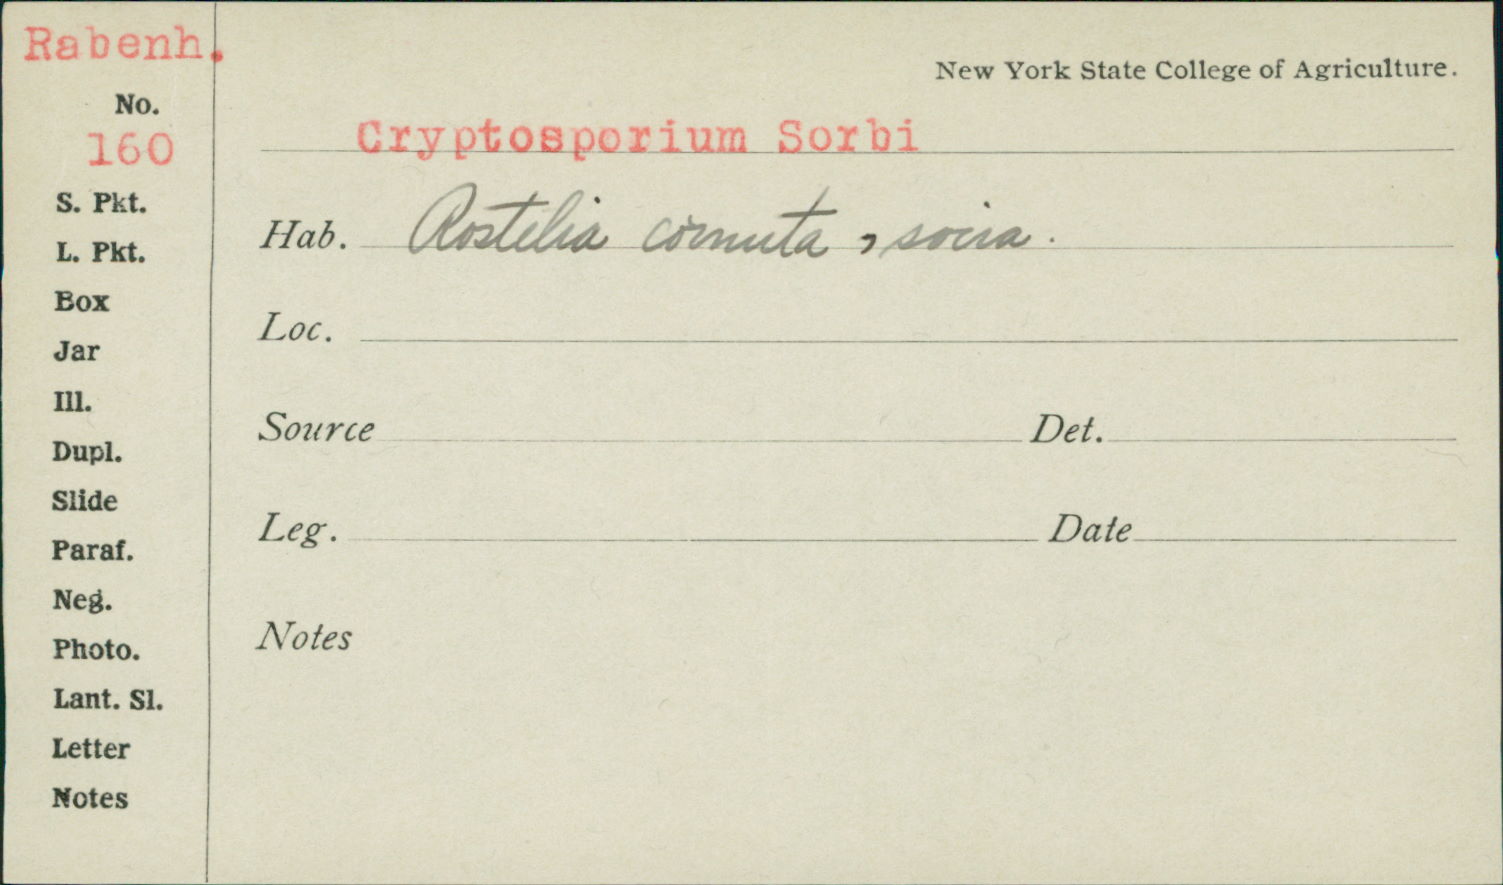 Rabenh.
New York State College of Agriculture.
No.
160
Cryptosporium Sorbi
S. Pkt.
Hab. Rostelia cornuta, socia.
L. Pkt.
Box
Loc.
Jar
Ill.
Source Det.
Dupl.
Slide
Leg. Date
Paraf.
Neg.
Notes
Photo.
Lant. Sl.
Letter
Notes